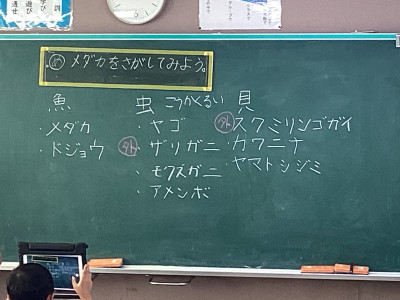 め メダカをさがしてみよう。
魚 虫 こうかくるい 貝
・メダカ ・ヤゴ 外・スクミリンゴガイ
・ドジョウ 外・ザリガニ ・カワニナ
・モクズガニ ・ヤマトシジミ
・アメンボ